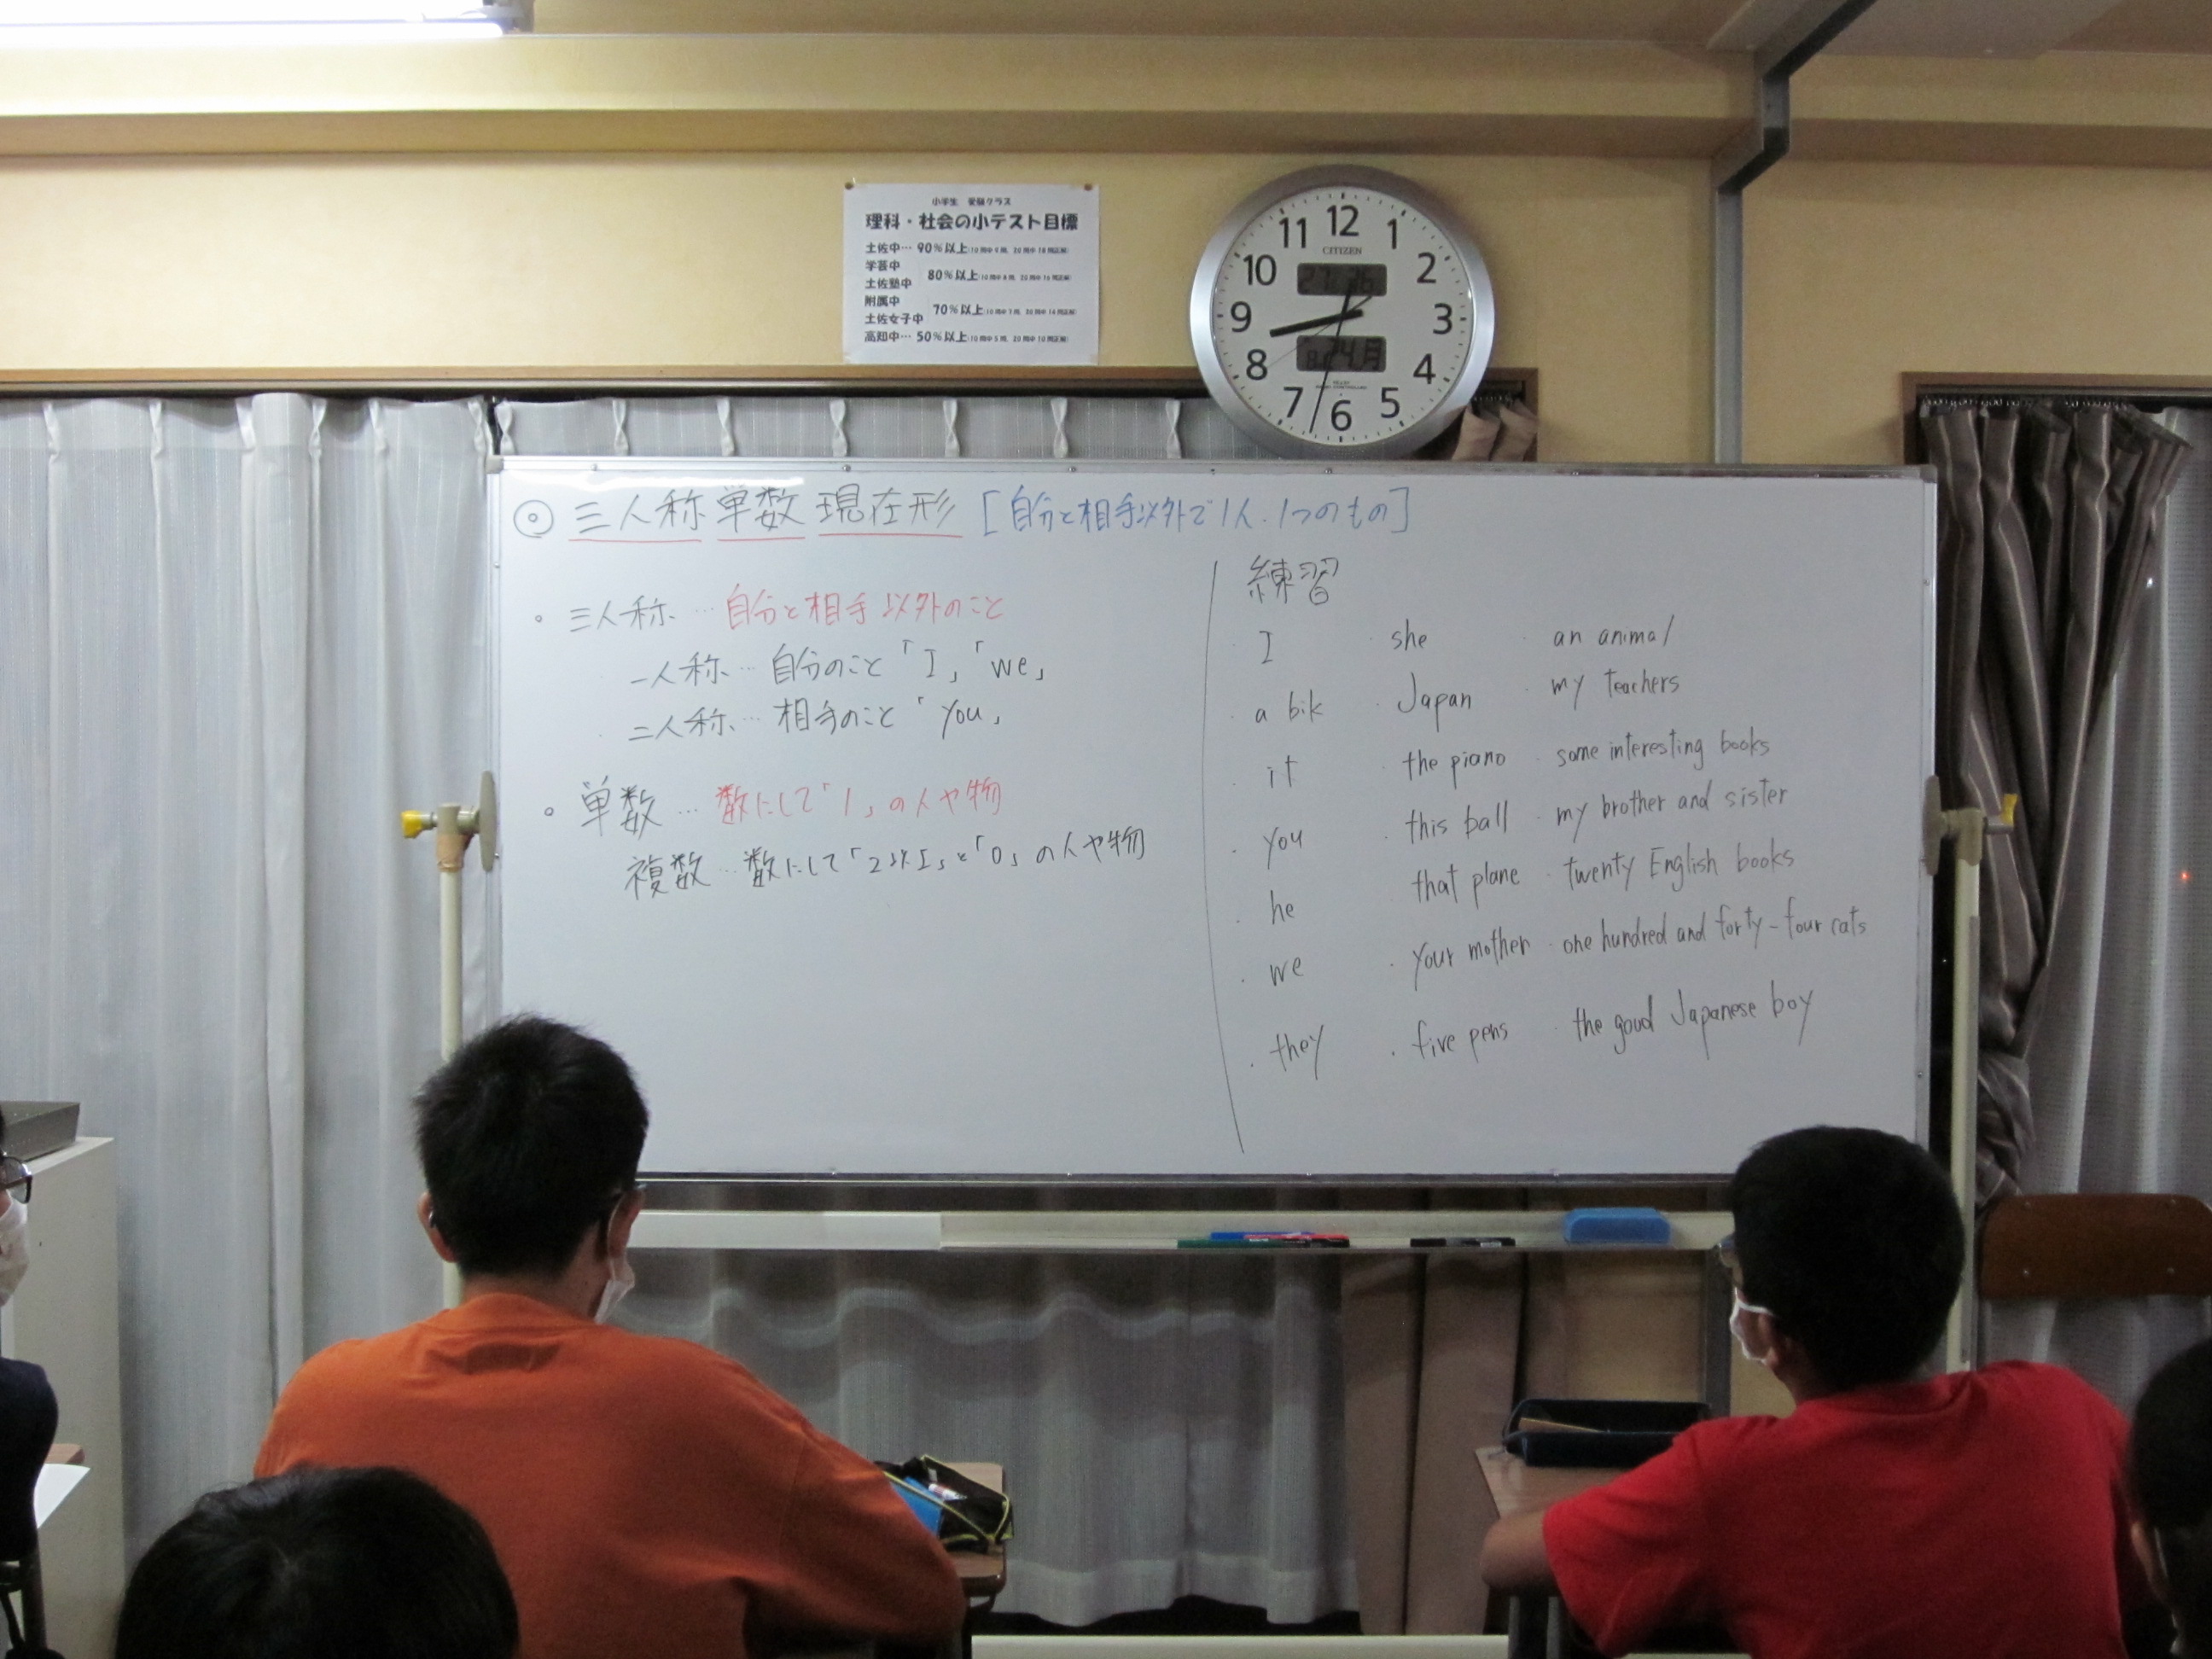 小学生 受験クラス
理科・社会の小テスト目標
土佐中… 90%以上(10問中9問、20問中18問正解)
学芸中
土佐塾中
80%以上(10問中8問、20問中16問正解)
附属中
土佐女子中
70%以上(10問中7問、20問中14問正解)
高知中… 50%以上(10問中5問、20問中10問正解)
12
1
2
3
4
5
6
7
8
9
10
11
CITIZEN
27
26
8
24月
◎ 三人称 単数 現在形 [自分と相手以外で1人.1つのもの]
。三人称… 自分と相手以外のこと
一人称… 自分のこと「I」「we」
二人称… 相手のこと「you」
。単数… 数にして「1」の人や物
複数… 数にして「2以上」と「0」の人や物
練習
・I ・she ・an animal
・a bik ・Japan ・my teachers
・it ・the piano ・some interesting books
・you ・this ball ・my brother and sister
・he ・that plane ・twenty English books
・we ・your mother ・one hundred and forty-four cats
・they ・five pens ・the good Japanese boy